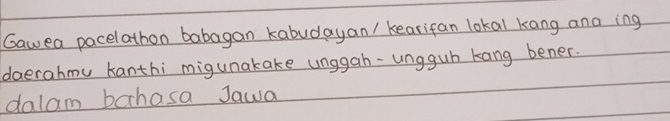 Gawea pacelathon babagan kabudayan/ kearifan lokal kang ana ing
daerahmu kanthi migunakake unggah-ungguh kang bener.
dalam bahasa Jawa